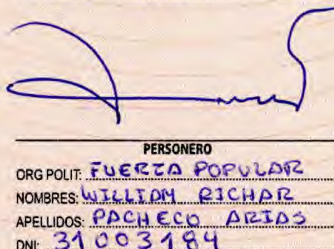 PERSONERO
ORG POLIT: FUERZA POPULAR
NOMBRES: WILLIAM RICHAR
APELLIDOS: PACHECO ARIAS
DNI: 31003184